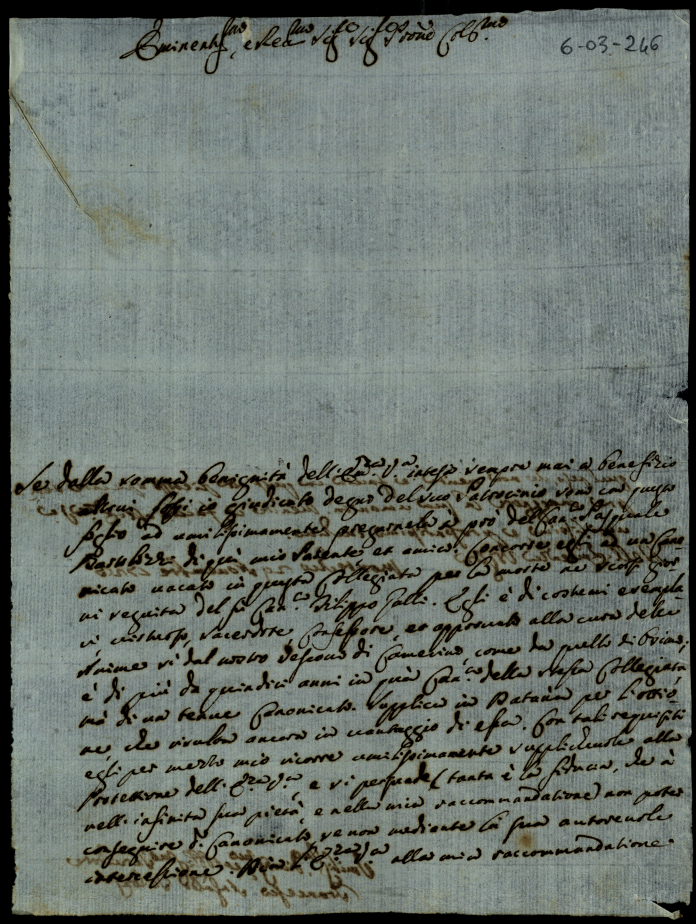 Eminentissmo, e Rev.mo Sig.re Sig.re Prone Col.mo
6-03-246
Se dalla somma benignità dell'Em.za V.a intesa sempre mai a benefizio
alcui fossi io giudicato degno del suo Patrocinio vengo con questo
foglio ad umilissimamente pregarnela a prò del Can.co Pasquale
di più mio Parente et amico. Concorre egli ad un Cano
nicato vacato in questa Collegiata per la morte ne scorsi gior
ni seguita del fù Can.co Filippo Galli. Egli è di costumi esempla
ri, virtuoso, sacerdote Confessore, et approvato alla cura delle
Anime sì dal nostro Vescovo di Camerino, come da quello di Osimo;
è di più da quindici anni in quà Can.co della stessa Collegiata
mà di un tenue Canonicato. Supplica in Dataria per l'ottio
ne, che risulta ancora in vantaggio di essa. Con tali requisiti
egli per mezzo mio ricorre umilissimamente supplichevole alla
Protezzione dell'Em.za V.a, e si persuade (tanta è la fiducia, che à
nell'infinita sua pietà, e nella mia raccommandatione) non poter
conseguire il Canonicato, se non mediante la sua autorevole
intercessione alla mia raccommandatione